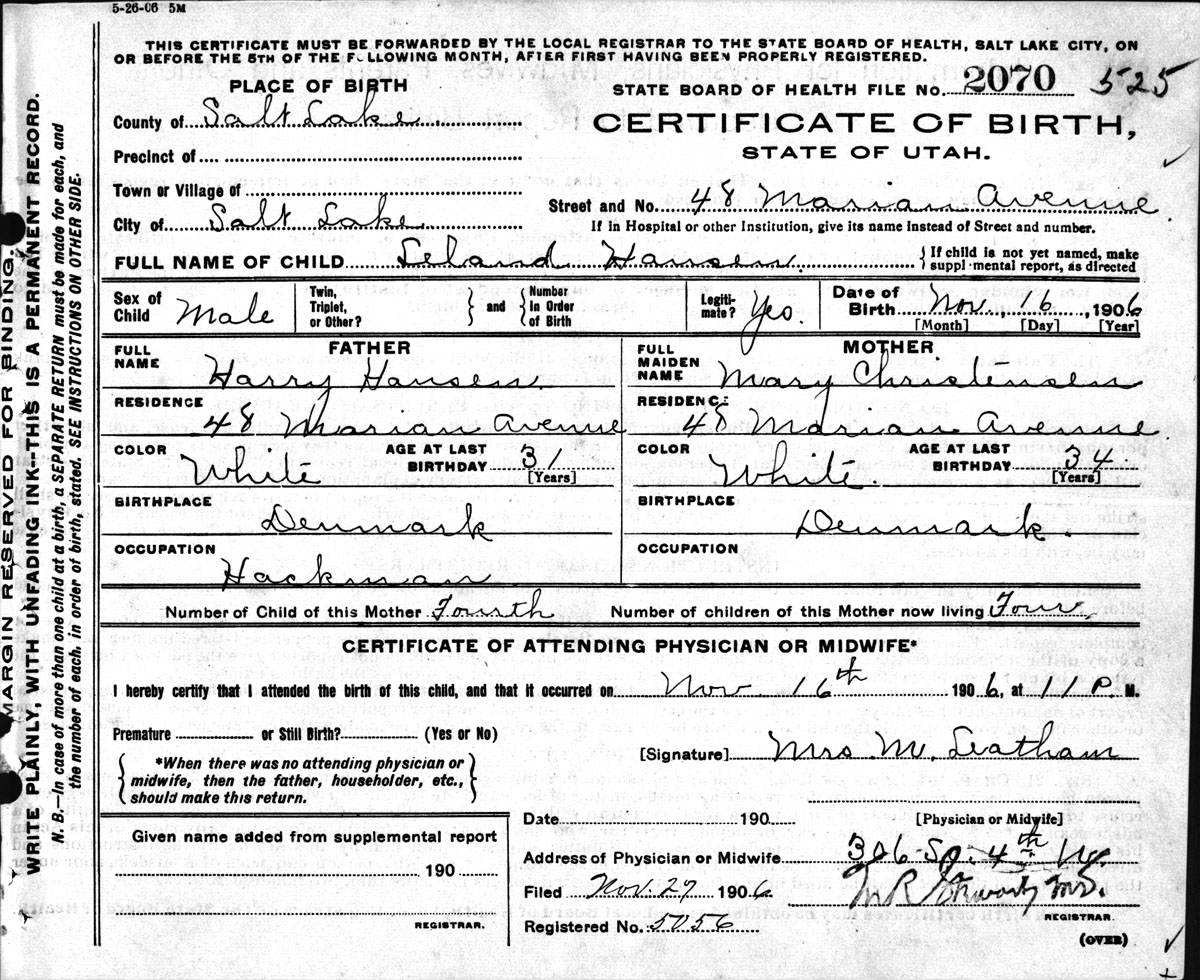 5-26-06 5M
THIS CERTIFICATE MUST BE FORWARDED BY THE LOCAL REGISTRAR TO THE STATE BOARD OF HEALTH, SALT LAKE CITY, ON
OR BEFORE THE 5TH OF THE FOLLOWING MONTH, AFTER FIRST HAVING BEEN PROPERLY REGISTERED.
PLACE OF BIRTH
STATE BOARD OF HEALTH FILE NO. 2070 525
County of Salt Lake
CERTIFICATE OF BIRTH,
STATE OF UTAH.
Precinct of
Town or Village of
Street and No. 48 Marian Avenue.
City of Salt Lake
If in Hospital or other Institution, give its name instead of Street and number.
FULL NAME OF CHILD Leland Hansen. { If child is not yet named, make
supplemental report, as directed
Sex of
Child Male
Twin,
Triplet,
or Other? } and { Number
In Order
of Birth
Legiti-
mate? Yes.
Date of
Birth Nov. 16, 1906
[Month] [Day] [Year]
FATHER
FULL
NAME Harry Hansen.
RESIDENCE
48 Marian Avenue
COLOR White AGE AT LAST
BIRTHDAY 31
[Years]
BIRTHPLACE
Denmark
OCCUPATION
Hackman
MOTHER
FULL
MAIDEN
NAME Mary Christensen
RESIDENCE
48 Marian Avenue.
COLOR White. AGE AT LAST
BIRTHDAY 34
[Years]
BIRTHPLACE
Denmark.
OCCUPATION
Number of Child of this Mother Fourth Number of children of this Mother now living Four.
CERTIFICATE OF ATTENDING PHYSICIAN OR MIDWIFE*
I hereby certify that I attended the birth of this child, and that it occurred on Nov. 16th 1906, at 11 P M.
Premature or Still Birth? (Yes or No)
[Signature] Mrs. M. Leatham
{ *When there was no attending physician or
midwife, then the father, householder, etc.,
should make this return. }
Date 190
[Physician or Midwife]
Given name added from supplemental report
190
REGISTRAR.
Address of Physician or Midwife 306 So. 4th W.
Filed Nov. 27 1906
REGISTRAR.
Registered No. 5056
(OVER)
MARGIN RESERVED FOR BINDING.
WRITE PLAINLY, WITH UNFADING INK--THIS IS A PERMANENT RECORD.
N. B.—In case of more than one child at a birth, a SEPARATE RETURN must be made for each, and
the number of each, in order of birth, stated. SEE INSTRUCTIONS ON OTHER SIDE.